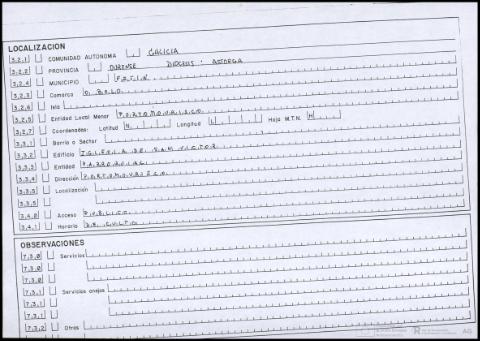 LOCALIZACION
3.2.1 COMUNIDAD AUTONOMA GALICIA
3.2.2 PROVINCIA OURENSE DIOCESIS: ASTORGA
3.2.4 MUNICIPIO PETIN
3.2.3 Comarca O BOLO
3.2.6 Isla
3.2.5 Entidad Local Menor PORTOMOURISCO
3.2.7 Coordenadas: Latitud N Longitud L Hoja M.T.N. H
3.3.1 Barrio o Sector
3.3.2 Edificio IGLESIA DE SAN VICTOR
3.3.3 Entidad PARROQUIAL
3.3.4 Dirección PORTOMOURISCO
3.3.5 Localización
3.3.5
3.4.2 Acceso PUBLICO
3.4.1 Horario DE CULTO
OBSERVACIONES
7.3.0 Servicios
7.3.0
7.3.0
7.3.1 Servicios anejos
7.3.1
7.3.1
7.3.2 Otros